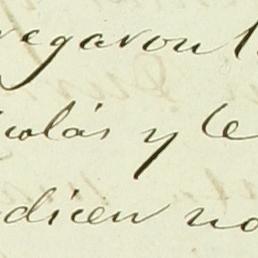 regaron l
icolás y le
dicen no